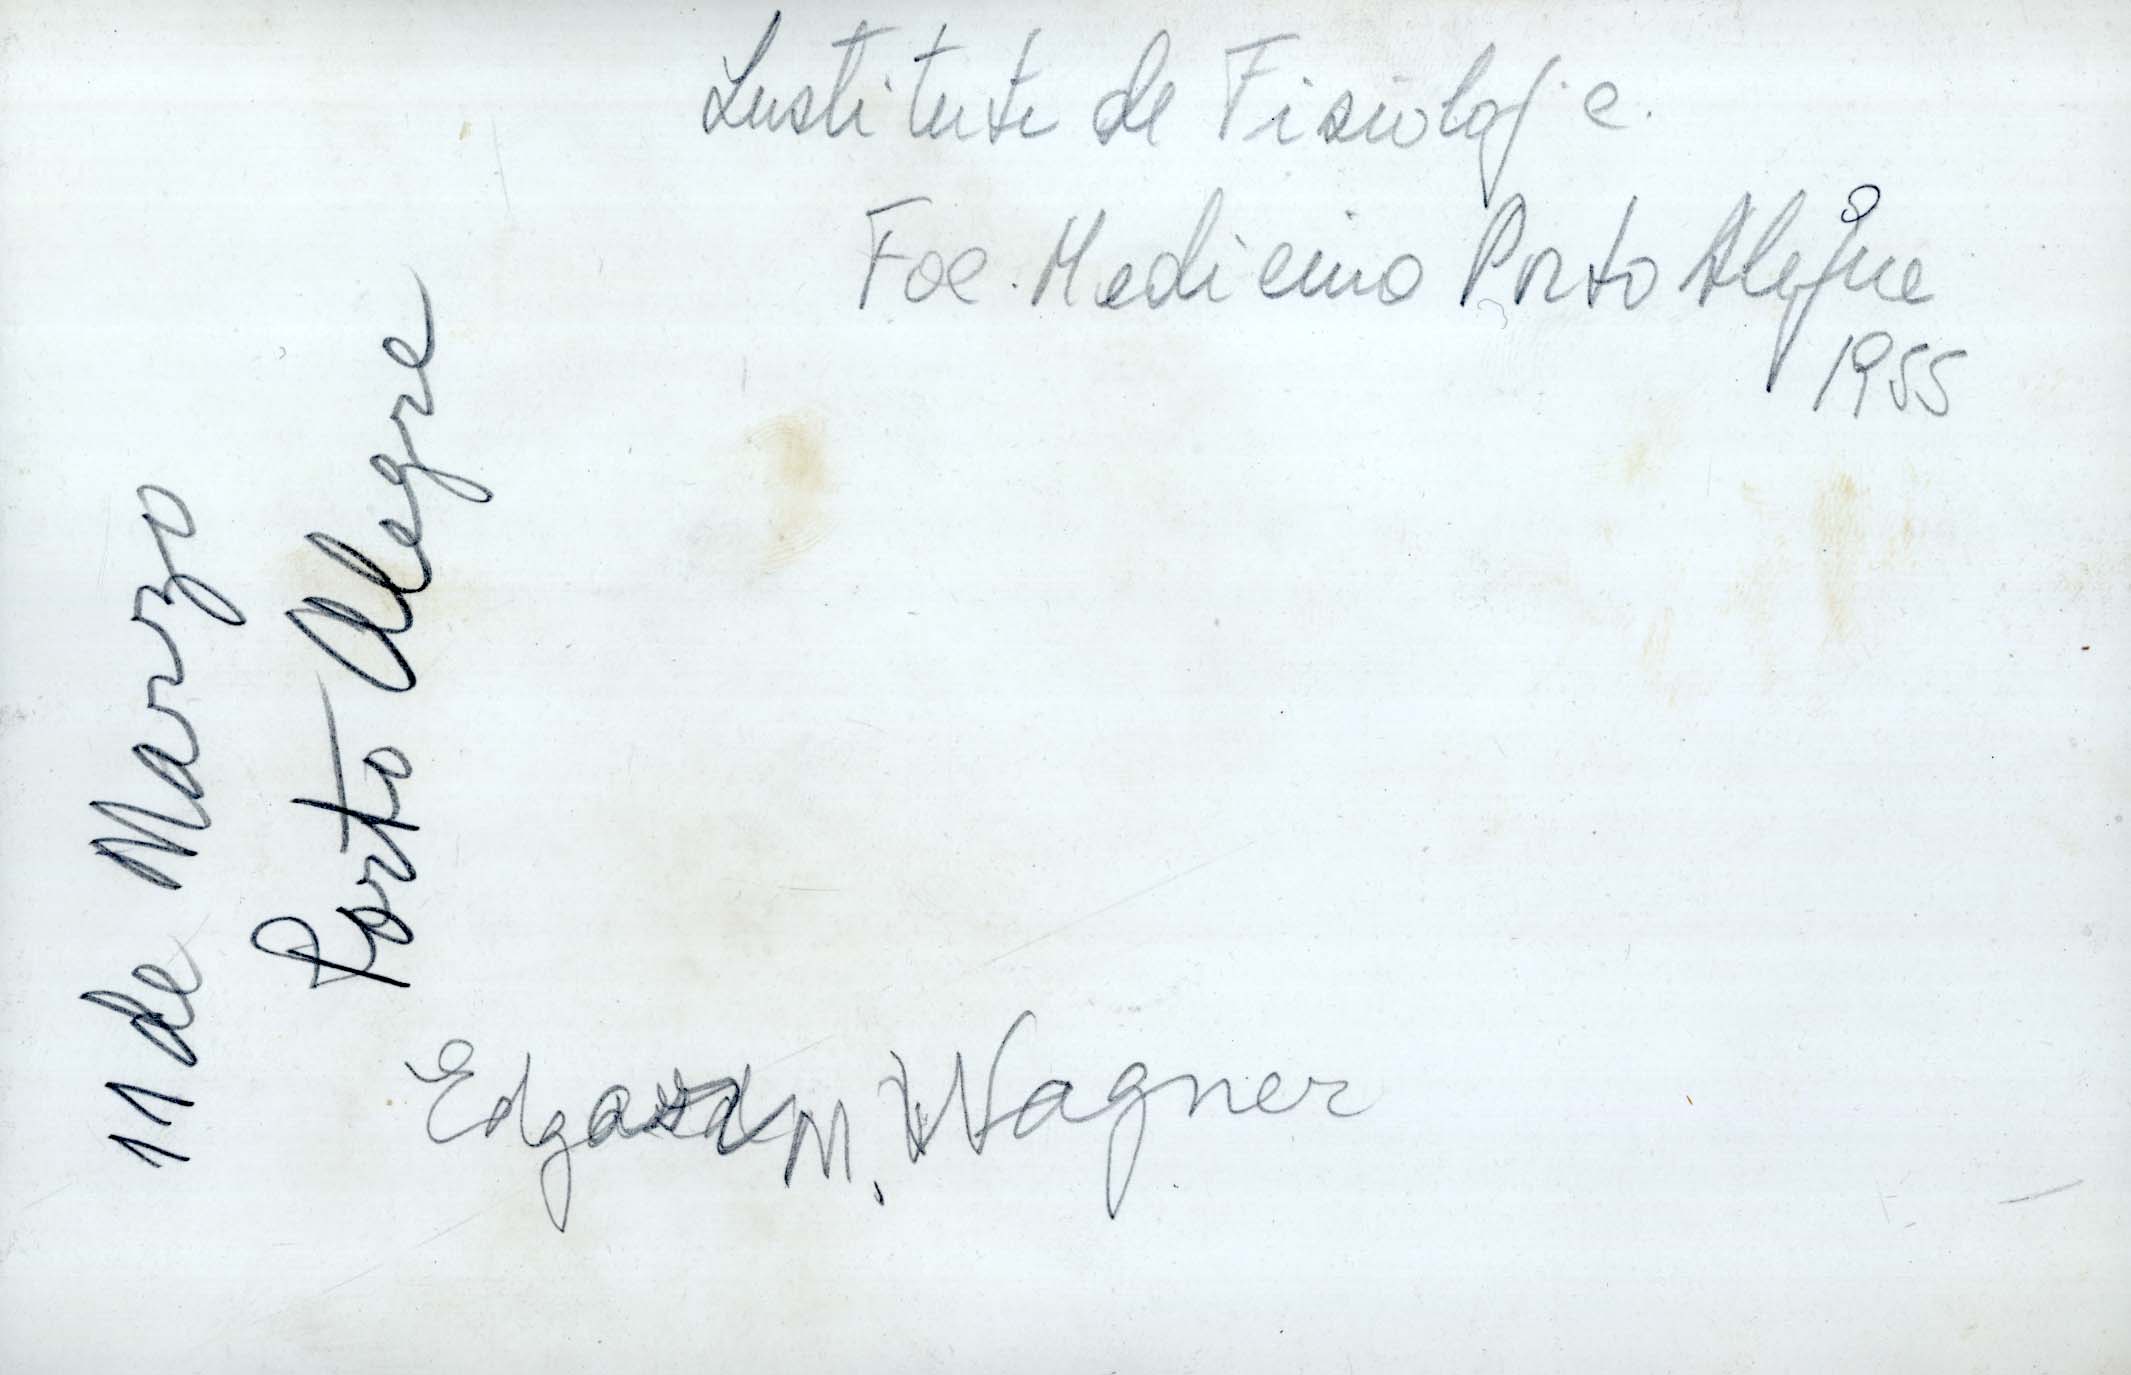 Instituto de Fisiologia.
Fac. Medicina Porto Alegre
1955
11 de Marzo
Porto Alegre
Edgard M. Wagner